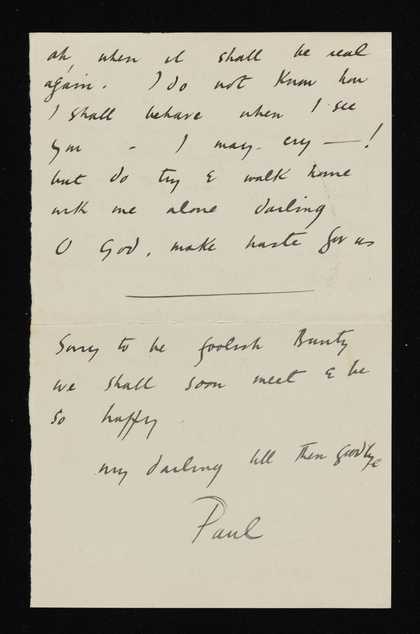 ah, when it shall be real
again. I do not know how
I shall behave when I see
you – I may cry — !
but do try & walk home
with me alone darling
O God, make haste for us
Sorry to be foolish Bunty
we shall soon meet & be
so happy
my darling till then goodbye
Paul